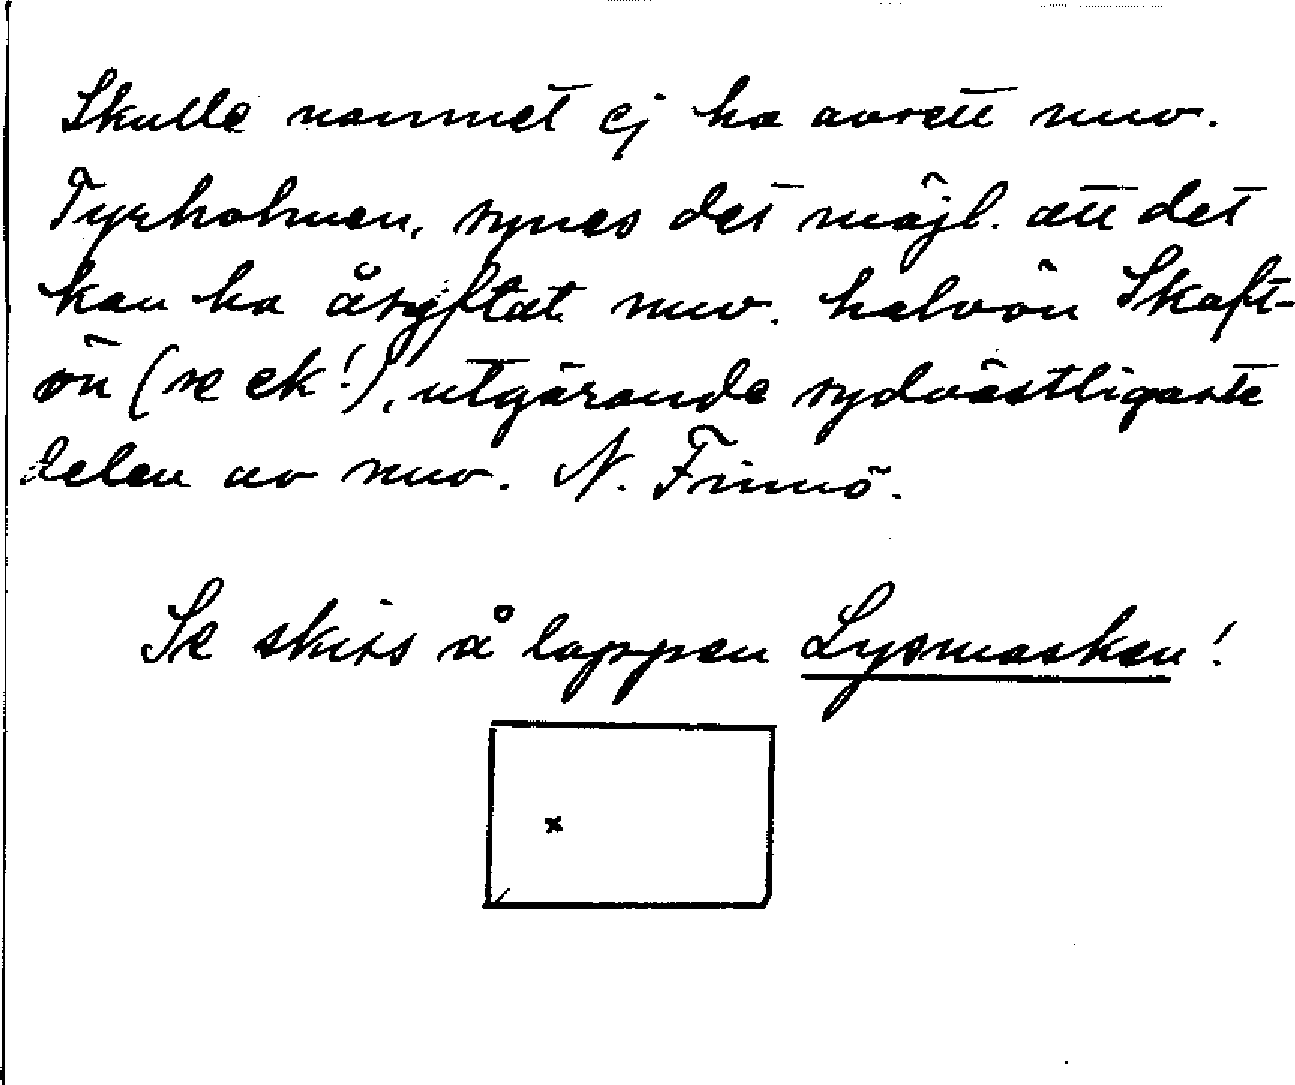 Skulle namnet ej ha avsett nuv.
Tyrholmen, synes det möjl. att det
kan ha åsyftat nuv. halvön Skaft-
ön (se ek!), utgörande sydvästligaste
delen av nuv. N. Finnö.
Se skiss å lappen Lysmasken!
x